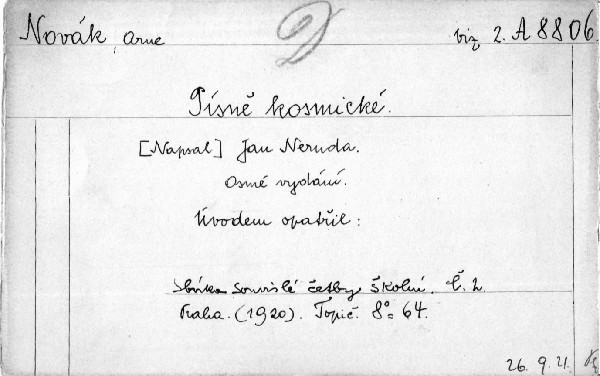 Novák, Arne
viz 2. A 8806.
D
Písně kosmické.
[Napsal] Jan Neruda.
Osmé vydání.
Úvodem opatřil:
Sbírka souvislé četby školní. Č. 2.
Praha. (1920). Topič. 8° = 64.
26. 9. 21.